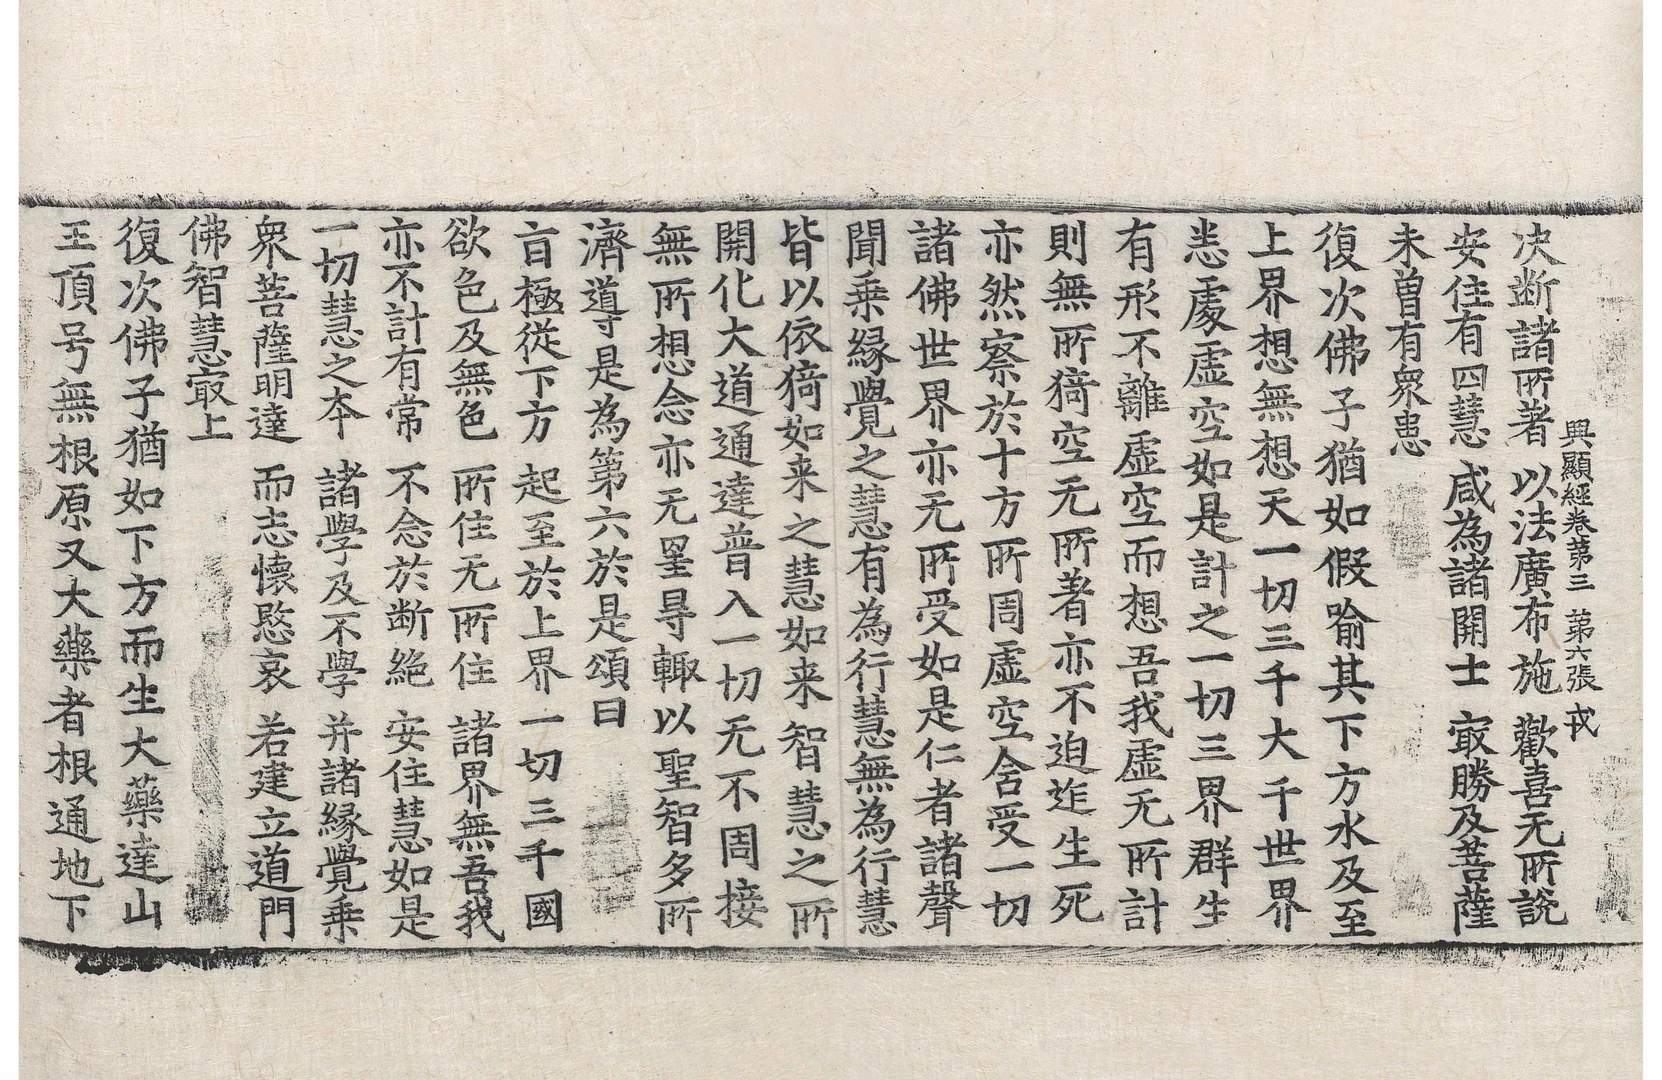 興顯經卷第三　第六張　戎
决断諸所著　以法廣布施　歡喜无所說
安住有四慧　咸為諸開士　㝡勝及菩薩
未曽有衆患
復次佛子猶如假喻其下方水及至
上界想無想天一切三千大千世界
悉處虛空如是計之一切三界群生
有形不離虛空而想吾我虛无所計
則無所猗空无所著亦不迫迮生死
亦然察於十方所周虛空舍受一切
諸佛世界亦无所受如是仁者諸聲
聞乗縁覺之慧有為行慧無為行慧
皆以依猗如来之慧如来智慧之所
開化大道通達普入一切无不周接
無所想念亦无罣㝵輙以聖智多所
濟導是為第六於是頌曰
亘極從下方　起至於上界　一切三千國
欲色及無色　所住无所住　諸界無吾我
亦不計有常　不念於断絕　安住慧如是
一切慧之本　諸學及不學　并諸縁覺乗
衆菩薩明達　而志懷愍哀　若建立道門
佛智慧㝡上
復次佛子猶如下方而生大藥達山
王頂号無根原又大藥者根通地下